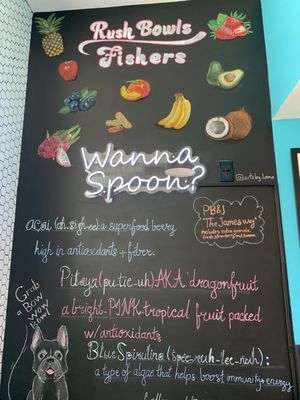 Rush Bowls
Fishers
Wanna
Spoon?
PB&J
"The James Wg"
includes extra granola,
fresh strawberry and banana
açaí (ah-sigh-ee): a superfood berry
high in antioxidants + fiber.
Pitaya (pu-tie-uh) AKA "dragonfruit"
a bright-PINK-tropical fruit packed
w/ antioxidants
Blue Spirulina (speer-ruh-lee-nuh):
a type of algae that helps boost immunity + energy
Grab
a Bow
Wow
Bowl!